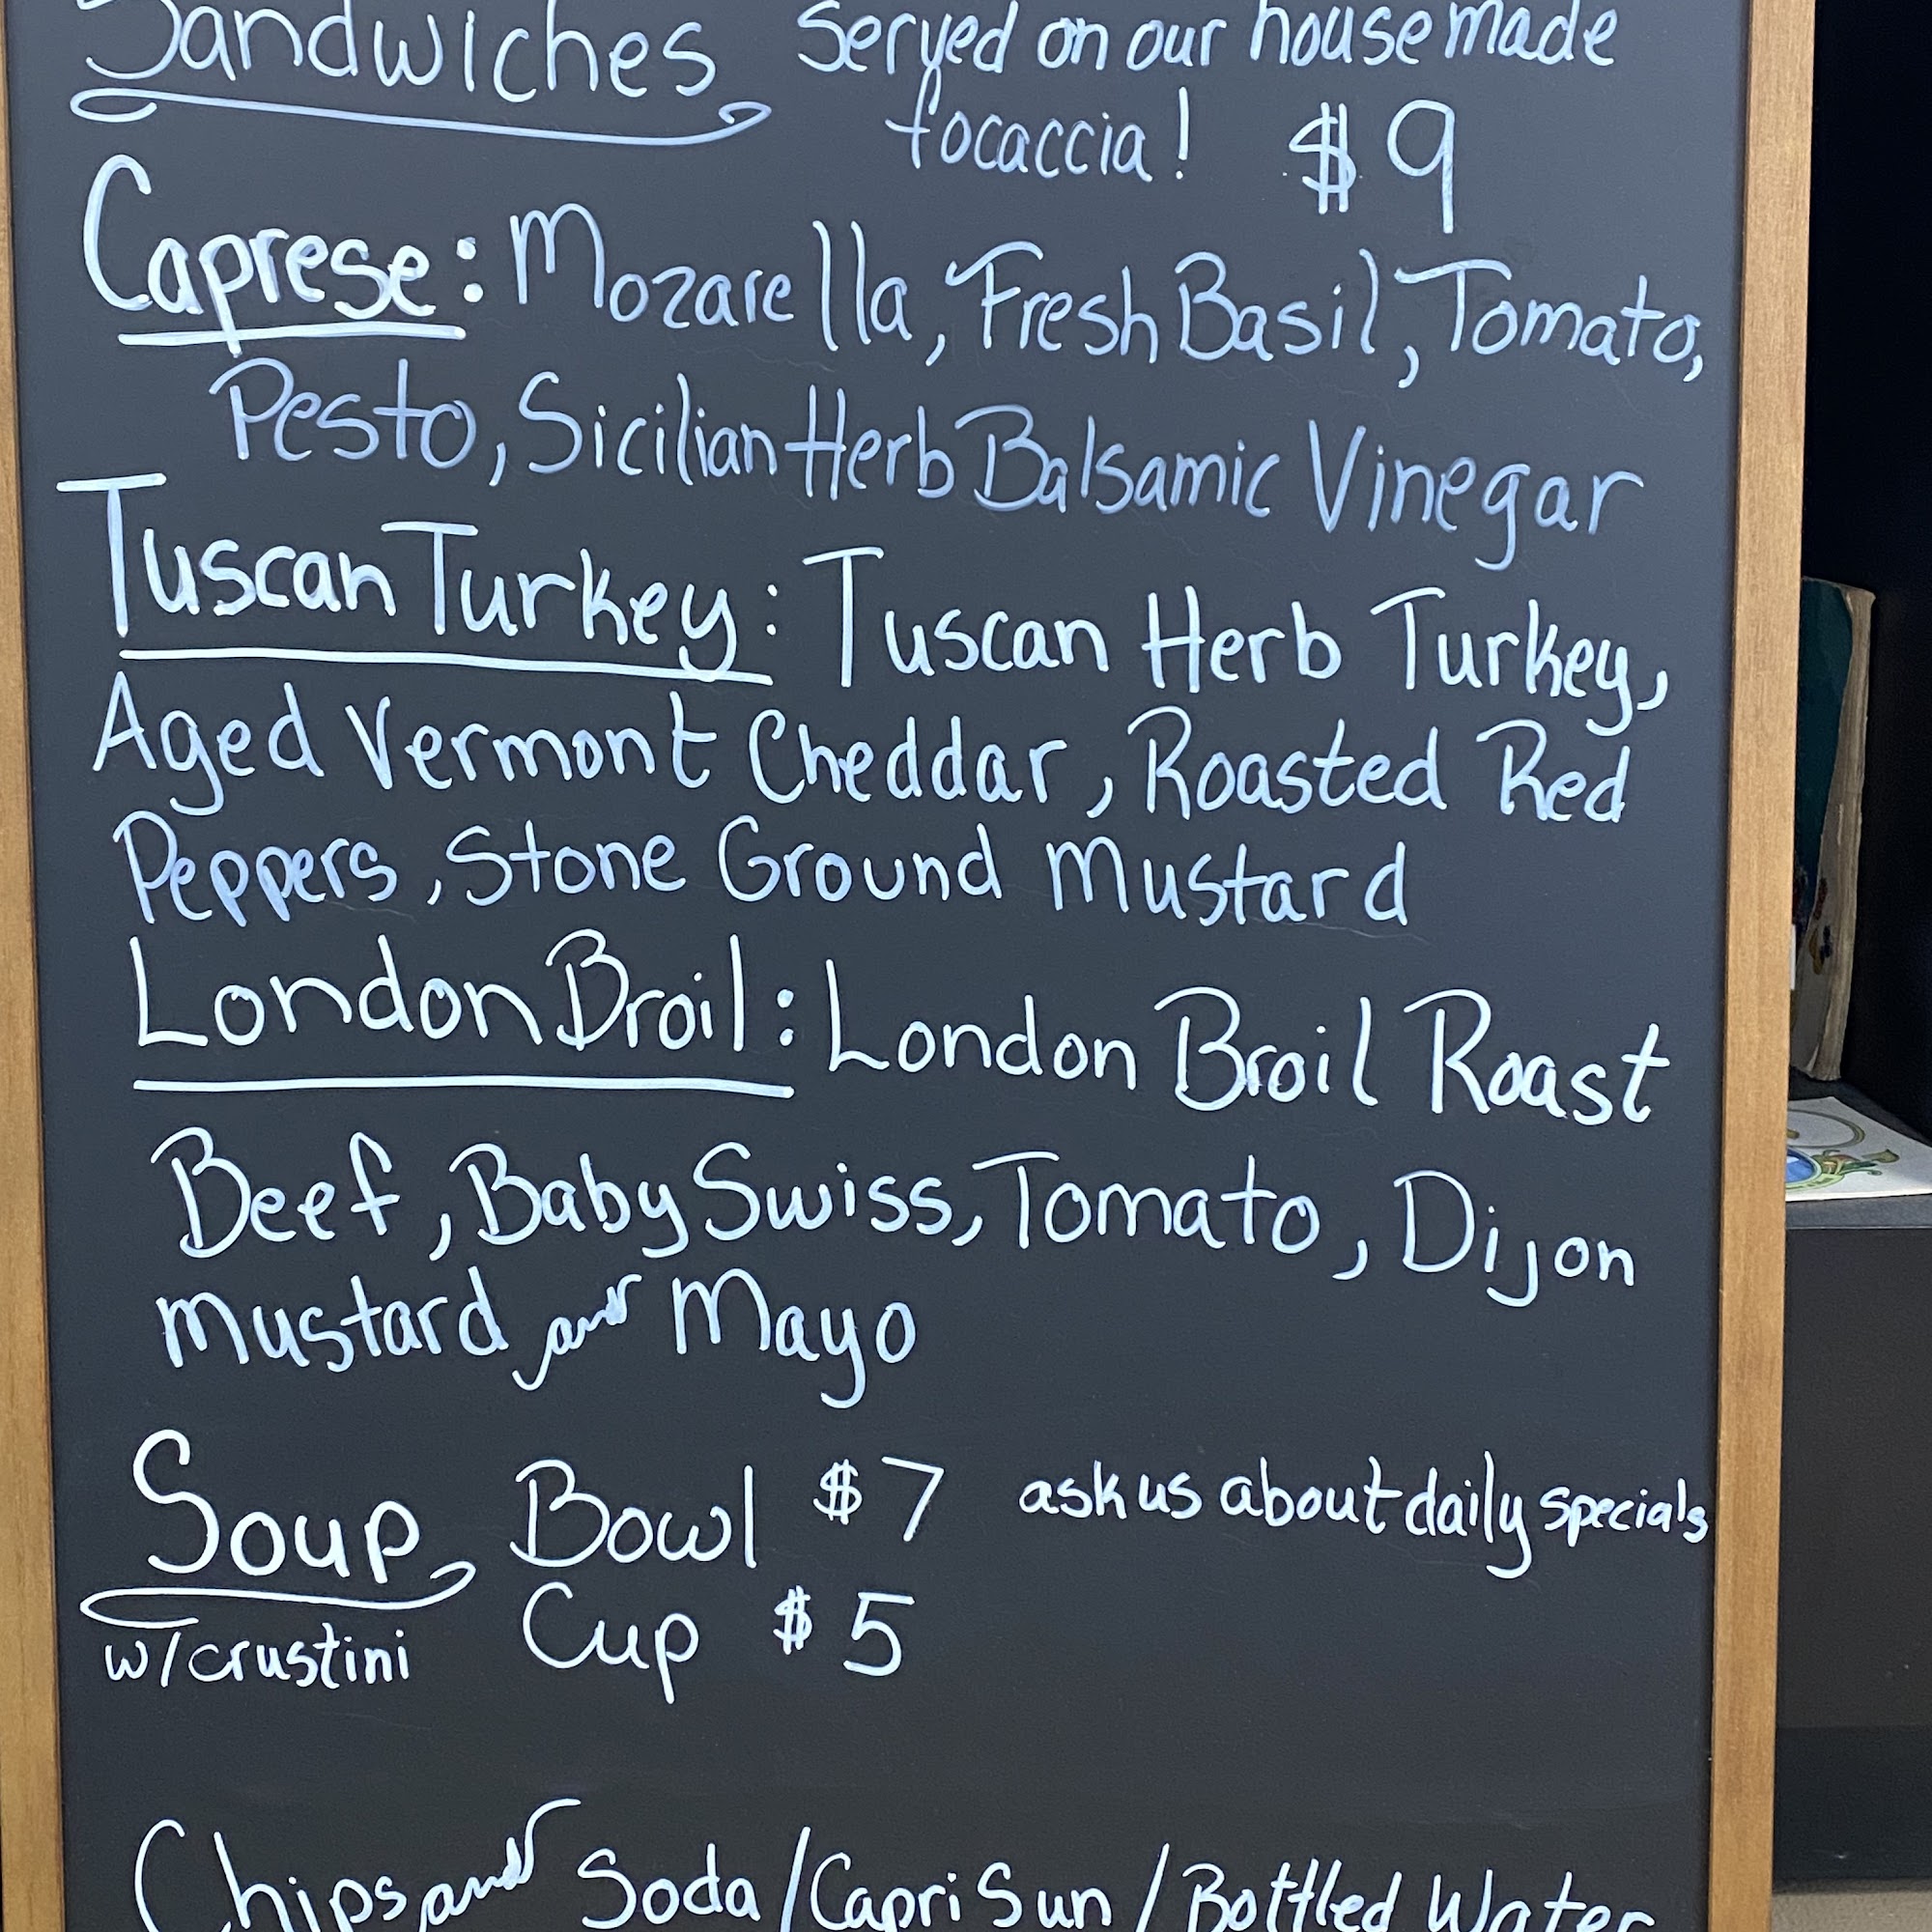 Sandwiches Served on our housemade
focaccia! $9
Caprese: Mozarella, Fresh Basil, Tomato,
Pesto, Sicilian Herb Balsamic Vinegar
Tuscan Turkey: Tuscan Herb Turkey,
Aged Vermont Cheddar, Roasted Red
Peppers, Stone Ground Mustard
London Broil: London Broil Roast
Beef, Baby Swiss, Tomato, Dijon
Mustard and Mayo
Soup Bowl $7 ask us about daily specials
w/crustini Cup $5
Chips and Soda/Capri Sun/Bottled Water